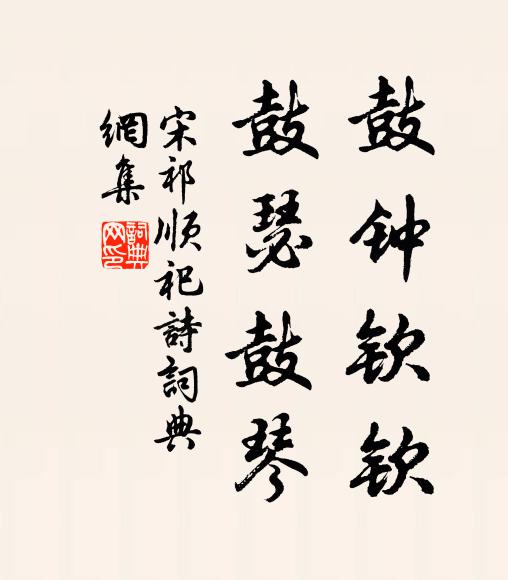 鼓钟钦钦
鼓瑟鼓琴
宋祁顺祀詩詞典
網集
詞典网印